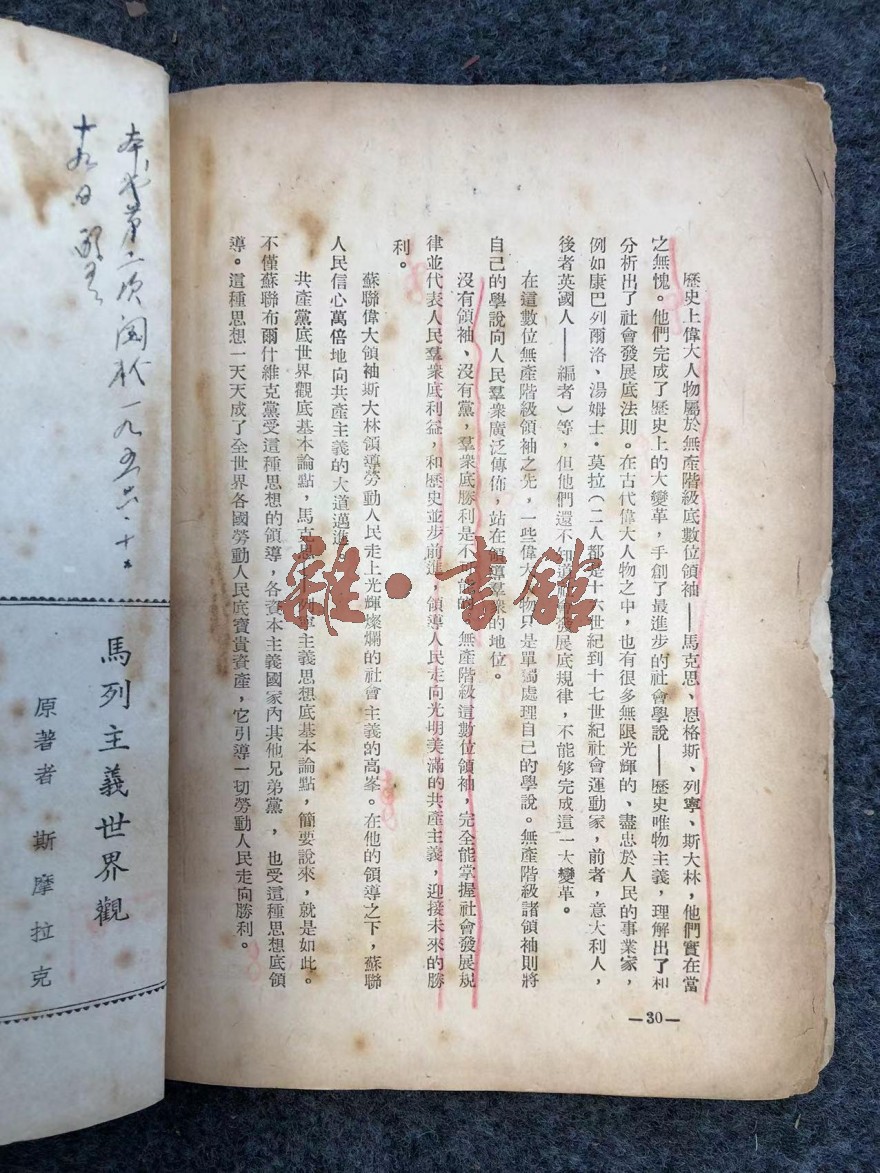 歷史上偉大人物屬於無產階級底數位領袖——馬克思、恩格斯、列寧、斯大林，他們實在當
之無愧。他們完成了歷史上的大變革，手創了最進步的社會學說——歷史唯物主義，理解出了和
分析出了社會發展底法則。在古代偉大人物之中，也有很多無限光輝的、盡忠於人民的事業家，
例如康巴列爾洛、湯姆士·莫拉（二人都是十六世紀到十七世紀社會運動家，前者，意大利人，
後者英國人——編者）等，但他們還不知道社會發展底規律，不能够完成這一大變革。
在這數位無產階級領袖之先，一些偉大人物只是單獨處理自己的學說。無產階級諸領袖則將
自己的學說向人民羣衆廣泛傳佈，站在領導羣衆的地位。
沒有領袖、沒有黨，羣衆底勝利是不可能的。無產階級這數位領袖，完全能掌握社會發展規
律並代表人民羣衆底利益，和歷史並步前進，領導人民走向光明美滿的共產主義，迎接未來的勝
利。
蘇聯偉大領袖斯大林領導勞動人民走上光輝燦爛的社會主義的高峯。在他的領導之下，蘇聯
人民信心萬倍地向共產主義的大道邁進。
共產黨底世界觀底基本論點，馬克思列寧主義思想底基本論點，簡要說來，就是如此。
不僅蘇聯布爾什維克黨受這種思想的領導，各資本主義國家內其他兄弟黨，也受這種思想底領
導。這種思想一天天成了全世界各國勞動人民底寶貴資產，它引導一切勞動人民走向勝利。
—30—
本書第二次閱於一九五六·十二
十九日
馬列主義世界觀
原著者 斯摩拉克
雜·書館